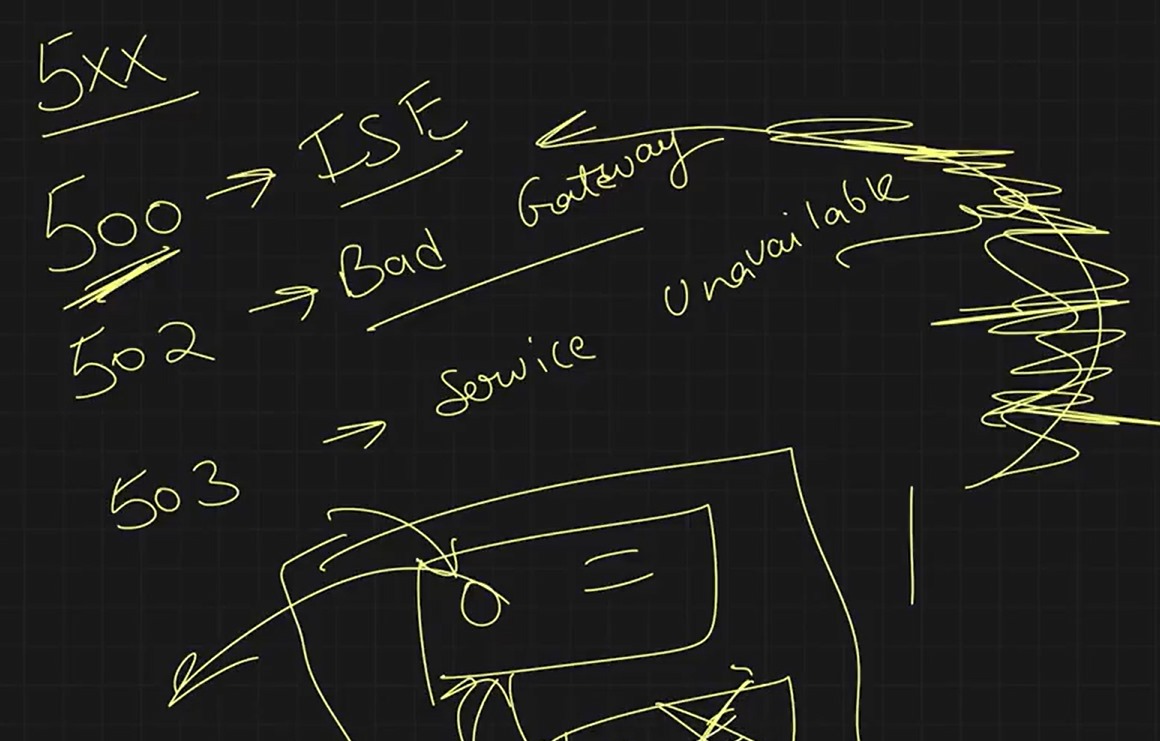 5xx
500 → ISE
502 → Bad Gateway
503 → Service Unavailable